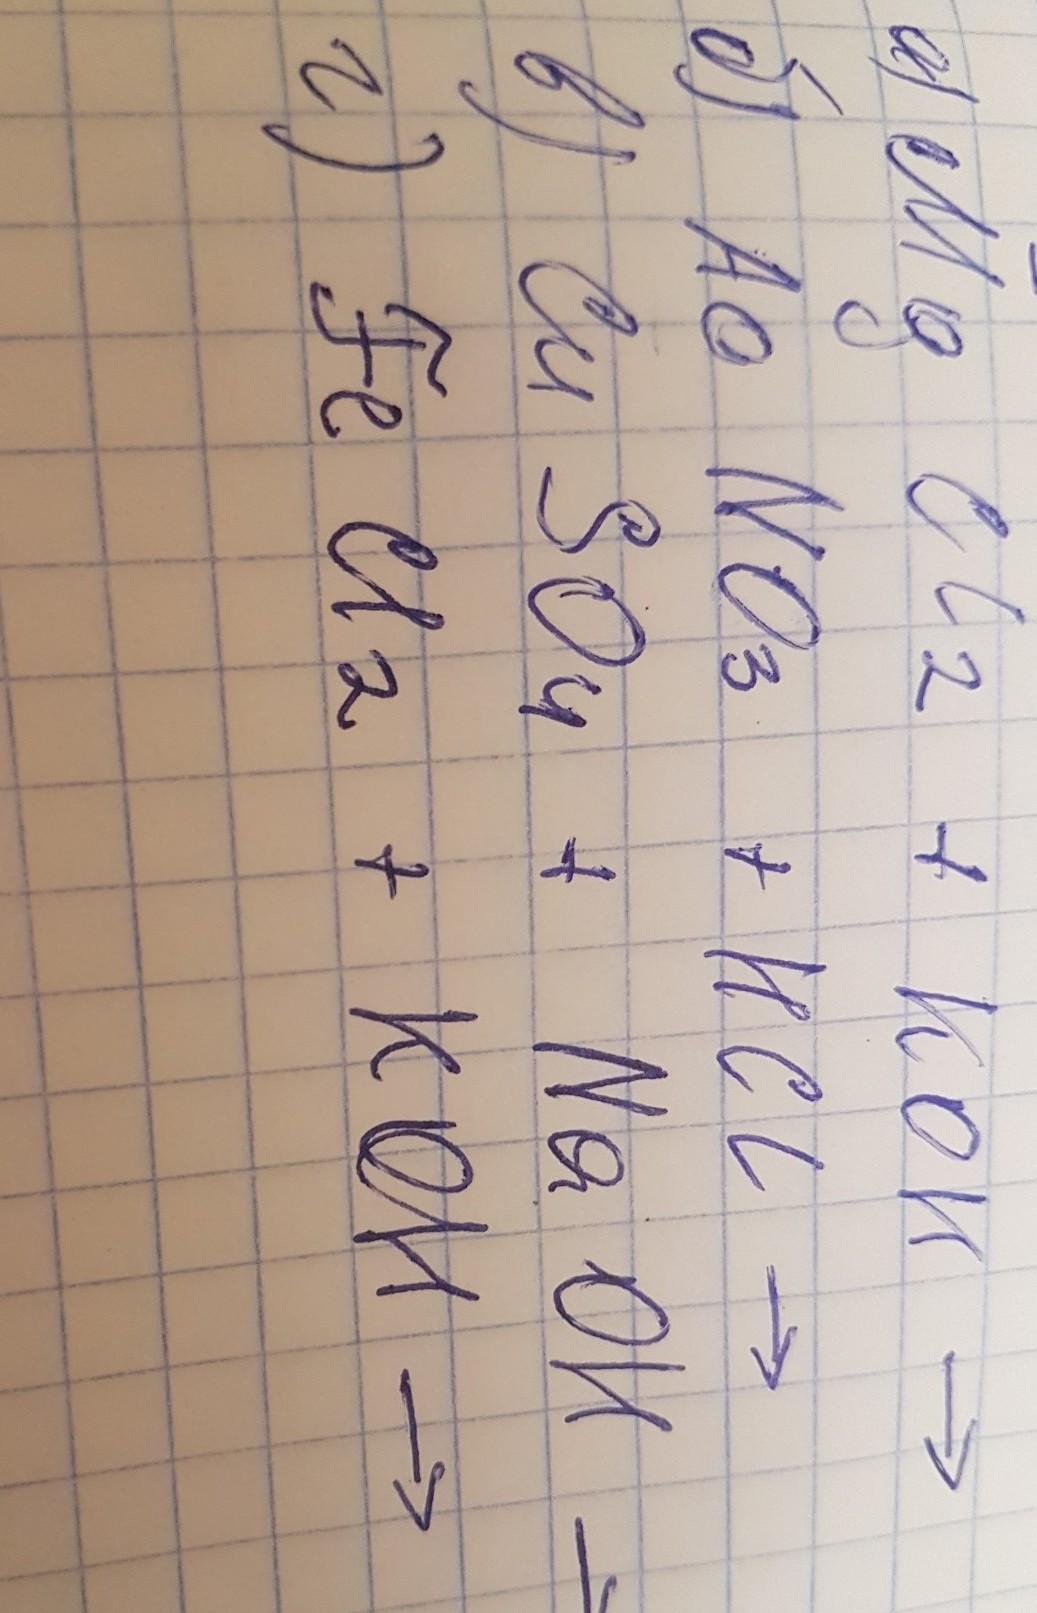 а) Mg Cl2 + KOH →
б) Ag NO3 + HCl →
в) Cu SO4 + Na OH →
г) Fe Cl2 + KOH →